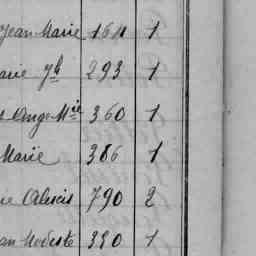 Jean Marie 164 1
arie Jh 293 1
t Ange Mie 360 1
Marie 386 1
ne Alexis 790 2
an Modeste 390 1